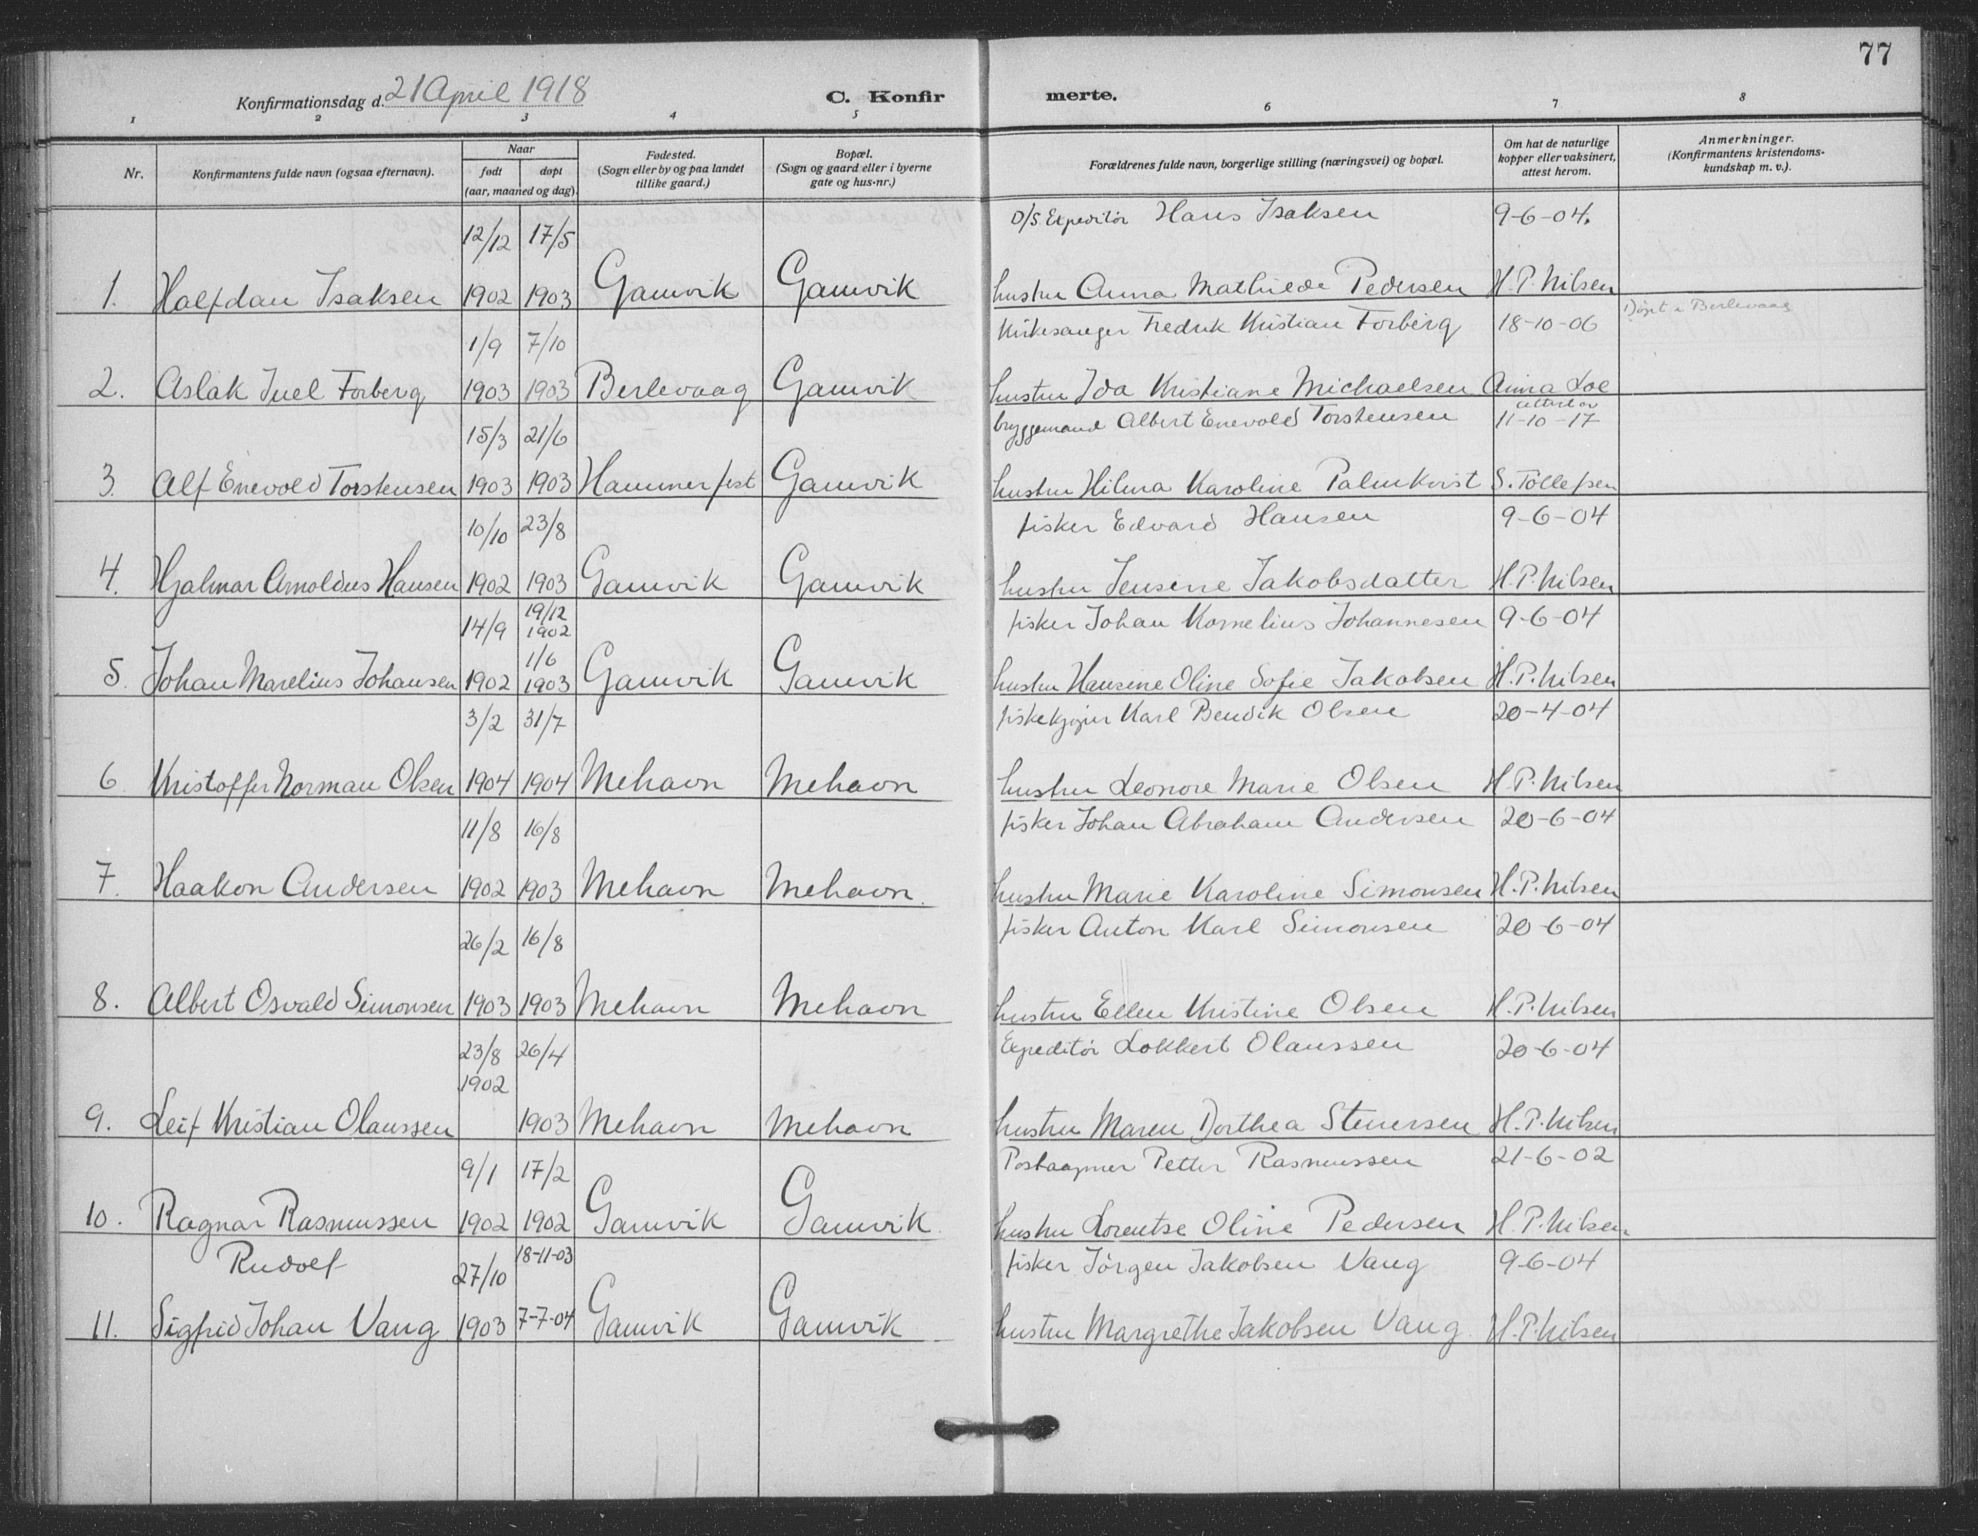 77
Konfirmationsdag d. 21 April 1918
C. Konfirmerte.
1 2 3 4 5 6 7 8
Nr.
Konfirmantens fulde navn (ogsaa efternavn).
Naar
født døpt
(aar, maaned og dag).
Fødested.
(Sogn eller by og paa landet
tillike gaard.)
Bopæl.
(Sogn og gaard eller i byerne
gate og hus-nr.)
Forældrenes fulde navn, borgerlige stilling (næringsvei) og bopæl.
Om hat de naturlige
kopper eller vaksinert,
attest herom.
Anmerkninger.
(Konfirmantens kristendoms-
kundskap m. v.).
12/12 17/5 D/S Expeditør Hans Isaksen 9-6-04.
1. Halfdan Isaksen 1902 1903 Gamvik Gamvik hustru Anna Mathilde Pedersen H.P. Nilsen
1/9 7/10 Kirkesanger Fredrik Kristian Forberg 18-10-06 Døpt i Berlevaag
2. Aslak Juel Forberg 1903 1903 Berlevaag Gamvik hustru Ida Kristiane Michaelsen Anna Loe
15/3 21/6 bryggemand Albert Enevold Torstensen 11-10-17
3. Alf Enevold Torstensen 1903 1903 Hammerfest Gamvik hustru Hilma Karoline Palmkvist S. Tollefsen
10/10 23/8 fisker Edvard Hansen 9-6-04
4. Hjalmar Arnoldus Hansen 1902 1903 Gamvik Gamvik hustru Jensine Jakobsdatter H.P. Nilsen
14/9 19/12 1902 fisker Johan Kornelius Johannesen 9-6-04
5. Johan Marelius Johansen 1902 1/6 1903 Gamvik Gamvik hustru Hansine Oline Sofie Jakobsen H.P. Nilsen
3/2 31/7 fiskekjøper Karl Bendik Olsen 20-4-04
6 Kristoffer Norman Olsen 1904 1904 Mehavn Mehavn hustru Leonore Marie Olsen H.P. Nilsen
11/8 16/8 fisker Johan Abraham Andersen 20-6-04
7. Haakon Andersen 1902 1903 Mehavn Mehavn. hustru Marie Karoline Simonsen H.P. Nilsen
26/2 16/8 fisker Anton Karl Simonsen 20-6-04
8. Albert Osvald Simonsen 1903 1903 Mehavn Mehavn hustru Ellen Kristine Olsen H.P. Nilsen
23/8 26/4 Expeditør Lokkert Olaussen 20-6-04
1902
9. Leif Kristian Olaussen 1903 Mehavn Mehavn hustru Maren Dorthea Stenersen H.P. Nilsen
9/1 17/2 Postaapner Petter Rasmussen 21-6-02
10. Ragnar Rasmussen 1902 1902 Gamvik Gamvik. hustru Lorentse Oline Pedersen H.P. Nilsen
Rudolf 27/10 18-11-03 fisker Jörgen Jakobsen Vang 9-6-04
11. Sigfrid Johan Vang 1903 7-7-04 Gamvik Gamvik hustru Margrethe Jakobsen Vang H.P. Nilsen